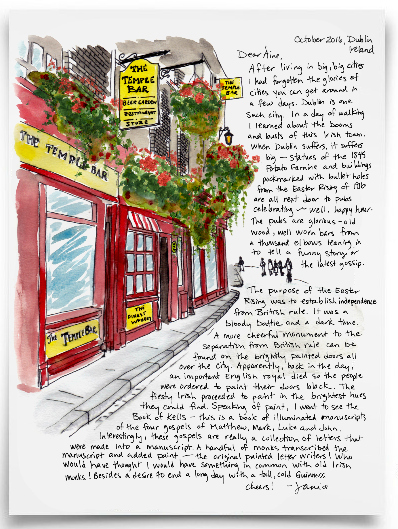 October 2016, Dublin
Ireland
Dear Aine,
After living in big, big cities
I had forgotten the glories of
cities you can get around in
a few days. Dublin is one
such city. In a day of walking
I learned about the booms
and busts of this Irish town.
When Dublin suffers, it suffers
big — statues of the 1845
Potato Famine and buildings
pockmarked with bullet holes
from the Easter Rising of 1916
are all next door to pubs
celebrating — well, happy hour.
The pubs are glorious - old
wood, well worn bars from
a thousand elbows leaning in
to tell a funny story or
the latest gossip.
The purpose of the Easter
Rising was to establish independence
from British rule. It was a
bloody battle and a dark time.
A more cheerful monument to the
separation from British rule can be
found on the brightly painted doors all
over the city. Apparently, back in the day,
an important English royal died so the people
were ordered to paint their doors black. The
fiesty Irish proceeded to paint in the brightest hues
they could find. Speaking of paint, I went to see the
Book of Kells - this is a book of illuminated manuscripts
of the four gospels of Matthew, Mark, Luke and John.
Interestingly, these gospels are really a collection of letters that
were made into a manuscript. A handful of monks transcribed the
manuscript and added paint — the original painted letter writers! Who
would have thought I would have something in common with old Irish
monks! Besides a desire to end a long day with a tall, cold Guinness.
Cheers! - Janice
THE
TEMPLE
BAR
BEER GARDEN
RESTAURANT
STORE
THE
TEMPLE
BAR
THE TEMPLE BAR
THE
FINEST
THE TEMPLE BAR